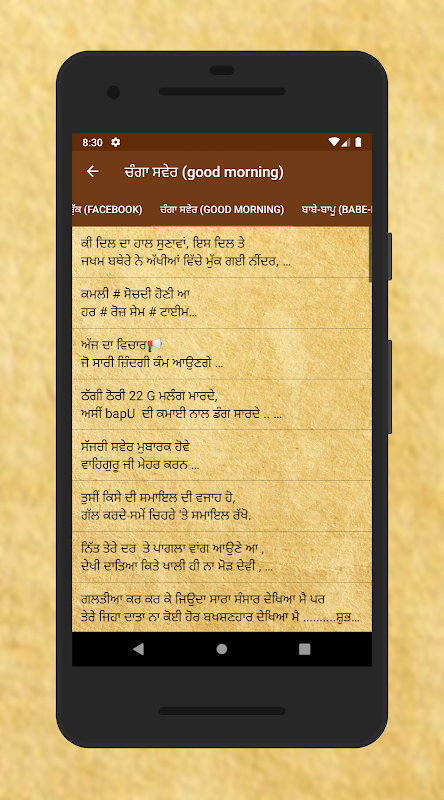 8:30
ਚੰਗਾ ਸਵੇਰ (good morning)
(FACEBOOK) ਚੰਗਾ ਸਵੇਰ (GOOD MORNING) ਬਾਬੇ-ਬਾਪੂ (BABE-
ਕੀ ਦਿਲ ਦਾ ਹਾਲ ਸੁਣਾਵਾਂ, ਇਸ ਦਿਲ ਤੇ
ਜਖਮ ਬਥੇਰੇ ਨੇ ਅੱਖੀਆਂ ਵਿੱਚੇ ਮੁੱਕ ਗਈ ਨੀਂਦਰ, ...
ਕਮਲੀ # ਸੋਚਦੀ ਹੋਣੀ ਆ
ਹਰ # ਰੋਜ਼ ਸੇਮ # ਟਾਈਮ...
ਅੱਜ ਦਾ ਵਿਚਾਰ📢
ਜੋ ਸਾਰੀ ਜ਼ਿੰਦਗੀ ਕੰਮ ਆਉਣਗੇ ...
ਠੱਗੀ ਠੋਰੀ 22 G ਮਲੰਗ ਮਾਰਦੇ,
ਅਸੀਂ bapU ਦੀ ਕਮਾਈ ਨਾਲ ਡੰਗ ਸਾਰਦੇ .. ...
ਸੱਜਰੀ ਸਵੇਰ ਮੁਬਾਰਕ ਹੋਵੇ
ਵਾਹਿਗੁਰੂ ਜੀ ਮੇਹਰ ਕਰਨ ...
ਤੁਸੀਂ ਕਿਸੇ ਦੀ ਸਮਾਇਲ ਦੀ ਵਜਾਹ ਹੋ,
ਗੱਲ ਕਰਦੇ ਸਮੇਂ ਚਿਹਰੇ 'ਤੇ ਸਮਾਇਲ ਰੱਖੋ.
ਨਿੱਤ ਤੇਰੇ ਦਰ ਤੇ ਪਾਗਲਾ ਵਾਂਗ ਆਉਣੇ ਆ ,
ਦੇਖੀ ਦਾਤਿਆ ਕਿਤੇ ਖਾਲੀ ਹੀ ਨਾ ਮੋੜ ਦੇਵੀ , ...
ਗਲਤੀਆ ਕਰ ਕਰ ਕੇ ਜਿਉਦਾ ਸਾਰਾ ਸੰਸਾਰ ਦੇਖਿਆ ਮੈ ਪਰ
ਤੇਰੇ ਜਿਹਾ ਦਾਤਾ ਨਾ ਕੋਈ ਹੋਰ ਬਖਸ਼ਣਹਾਰ ਦੇਖਿਆ ਮੈ ..........ਸ਼ੁਭ...